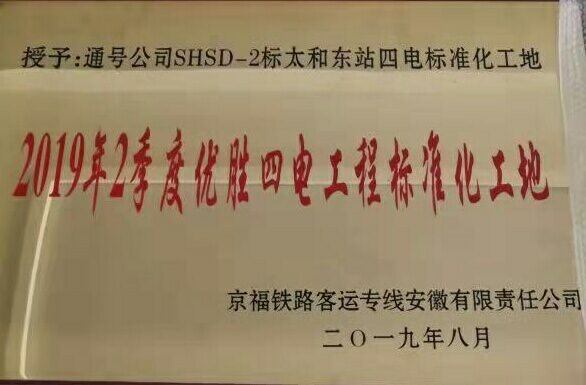 授予:通号公司SHSD-2标太和东站四电标准化工地
2019年2季度优胜四电工程标准化工地
京福铁路客运专线安徽有限责任公司
二〇一九年八月